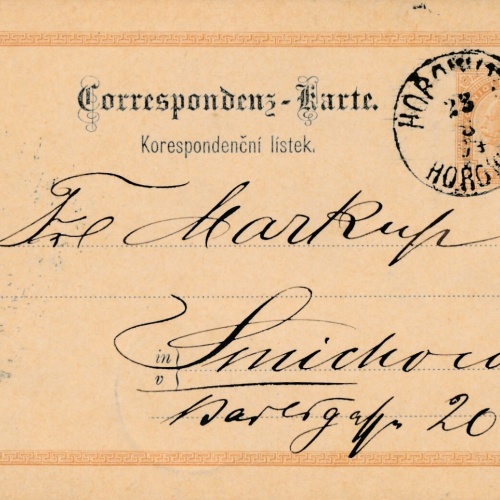 Correspondenz-Karte.
Korespondenční lístek.
HOROWIT
23
HOROV
Frl Markup
in
v
Smichow
Karlsgasse 20